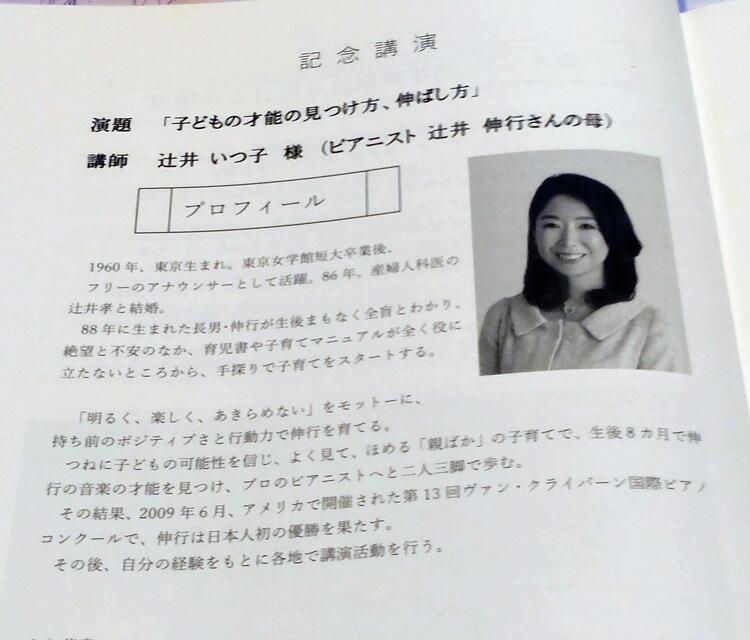 記念講演
演題　「子どもの才能の見つけ方、伸ばし方」
講師　辻井 いつ子 様 （ピアニスト 辻井 伸行さんの母）
プロフィール
1960年、東京生まれ。東京女学館短大卒業後、
フリーのアナウンサーとして活躍。86年、産婦人科医の
辻井孝と結婚。
88年に生まれた長男・伸行が生後まもなく全盲とわかり、
絶望と不安のなか、育児書や子育てマニュアルが全く役に
立たないところから、手探りで子育てをスタートする。
「明るく、楽しく、あきらめない」をモットーに、
持ち前のポジティブさと行動力で伸行を育てる。
つねに子どもの可能性を信じ、よく見て、ほめる「親ばか」の子育てで、生後8カ月で伸
行の音楽の才能を見つけ、プロのピアニストへと二人三脚で歩む。
その結果、2009年6月、アメリカで開催された第13回ヴァン・クライバーン国際ピアノ
コンクールで、伸行は日本人初の優勝を果たす。
その後、自分の経験をもとに各地で講演活動を行う。